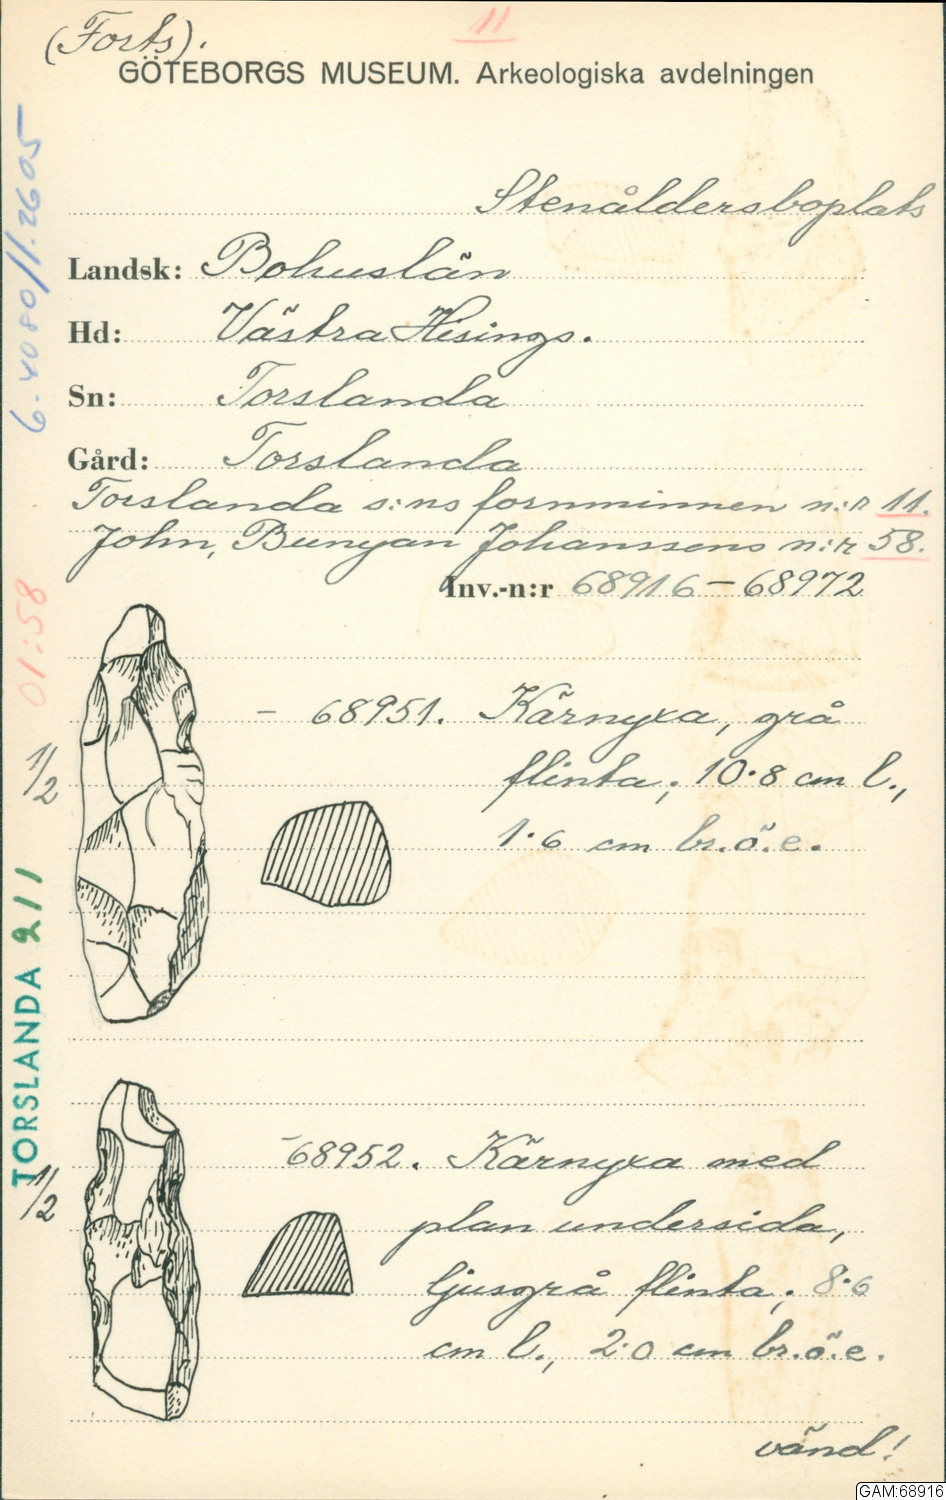 (Forts).
11
GÖTEBORGS MUSEUM. Arkeologiska avdelningen
Stenåldersboplats
Landsk: Bohuslän
Hd: Västra Hisings.
Sn: Torslanda
Gård: Torslanda
Torslanda s:ns fornminnen n:r 11.
John, Bunyan Johanssons n:r 58.
Inv.-n:r 68916-68972
- 68951. Kärnyxa, grå
flinta; 10.8 cm l.,
1.6 cm br.ö.e.
1/2
-68952. Kärnyxa med
plan undersida,
ljusgrå flinta; 8.6
cm l., 2.0 cm br.ö.e.
1/2
vänd!
6.4080/1.2605
01:58
TORSLANDA 211
GAM:68916